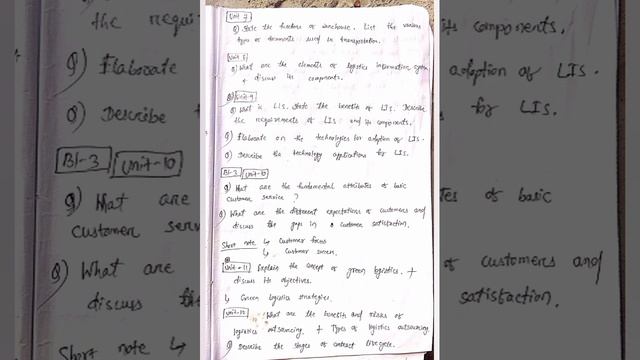 Unit 7
Q) State the functions of warehouse. List the various
types of documents used in transportation.
Unit 8
Q) What are the elements of logistics information system
+ discuss its components.
Unit-9
Q) What is LIS. State the benefits of LIS. Describe
the requirements of LIS and its components.
Q) Elaborate on the technologies for adoption of LIS.
Q) Describe the technology applications for LIS.
Bl-3 Unit-10
Q) What are the fundamental attributes of basic
customer service?
Q) What are the different expectations of customers and
discuss the gaps in customer satisfaction.
Short note ↳ Customer focus
↳ Customer success.
Unit-11 Explain the concept of green logistics. +
discuss its objectives.
↳ Green logistics strategies.
Unit-12 What are the benefits and risks of
logistics outsourcing. + Types of logistics outsourcing
Q) Describe the stages of contract lifecycle.